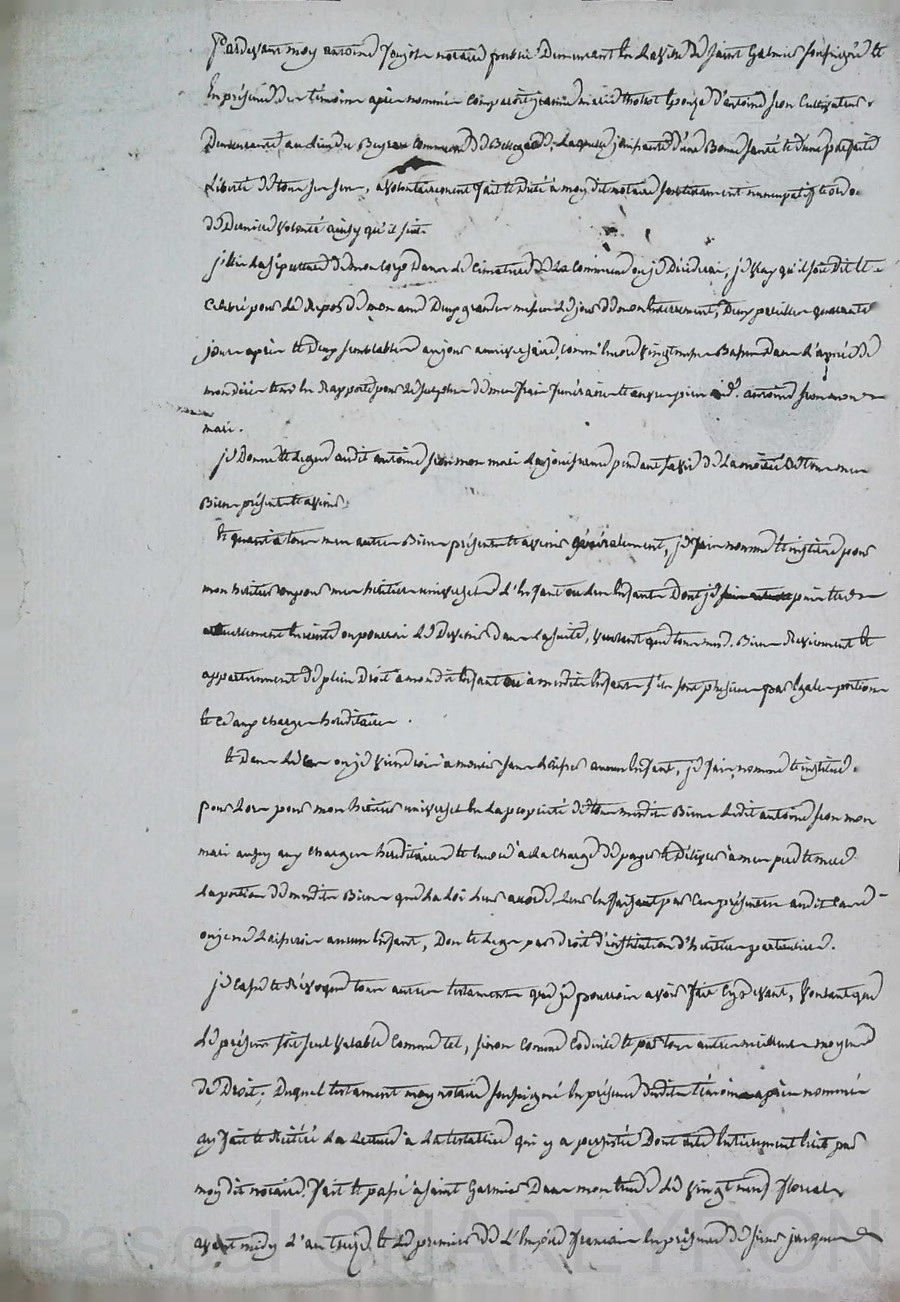 Pardevant moy antoine notaire public Demeurant En La ville de Saint Galmier soussigné et
En présence des témoins après nommés Comparoit marie épouse d'antoine Cultivateur
Demeurante au lieu du Commune de Bellegarde, Laquelle jouissante d'une Bonne santé et d'une parfaite
Liberté de tous ses sens, a volontairement fait et dicté à moy dit notaire son testament nuncupatif et orde.
de Derniere volonté ainsy qu'il suit.
j'Elis La sépulture de mon Corps Dans Le Cimetiere de La Commune ou je Déciderai, je veux qu'il soit dit et
Celebré pour Le Repos de mon ame Deux grandes messes Le jour de mon Enterrement, Deux pareilles quarante
jours après et Deux semblables au jour anniversaire, comm'Encore vingt messes Basses Dans L'année de
mon décès et m'en Rapporte pour Le surplus de mes frais funéraires et œuvres pies aud. antoine mon
mari.
je Donne et Legue audit antoine mon mari La jouissance pendant sa vie de La moitié de tous mes
Biens présents et avenir.
Et quant à tous mes autres Biens présents et avenir généralement, je fais nomme et institue pour
mon heritier ou pour mes heritiers universels L'Enfant ou Les Enfants Dont je puis être
actuellement Enceinte ou pourrai Le Devenir Dans La suite, voulant que tous mesd. Biens Reviennent et
appartiennent de plein Droit a mondit Enfant ou à mesdits Enfants s'ils sont plusieurs par Egales portions
et ce aux charges héréditaires.
Et Dans Le Cas ou je viendrois à mourir sans Laisser aucun Enfant, je fais, nomme et institue.
pour Lors pour mon heritier universel En La propriété de tous mesdits Biens Ledit antoine mon
mari aussy aux charges héréditaires et Encore à La Charge de payer et Délivrer à mes pere et mere
La portion de mesdits Biens que La Loi Leur accorde, Leur En faisant par Ces présentes audit Cas
ou je ne Laisserois aucun Enfant, Don et Legs par Droit d'institution d'héritiers particuliers.
je Casse et Révoque tous autres testaments que je pourrois avoir fait Cy devant, voulant que
Le présent soit seul valable Comme tel, sinon Comme Codicile et par tous autres meilleurs moyens
de Droit; Duquel testament moy notaire soussigné En présence desdits témoins après nommés
ay fait et Réitéré La Lecture à La testatrice qui y a persisté Dont acte Entierement Ecrit par
moy dit notaire. fait et passé à saint Galmier Dans mon Etude Le vingt neuf floreal
avant midy L'an treize et Le premier de L'Empire francais En présence de sieurs jacques
Pascal CHAREYRON